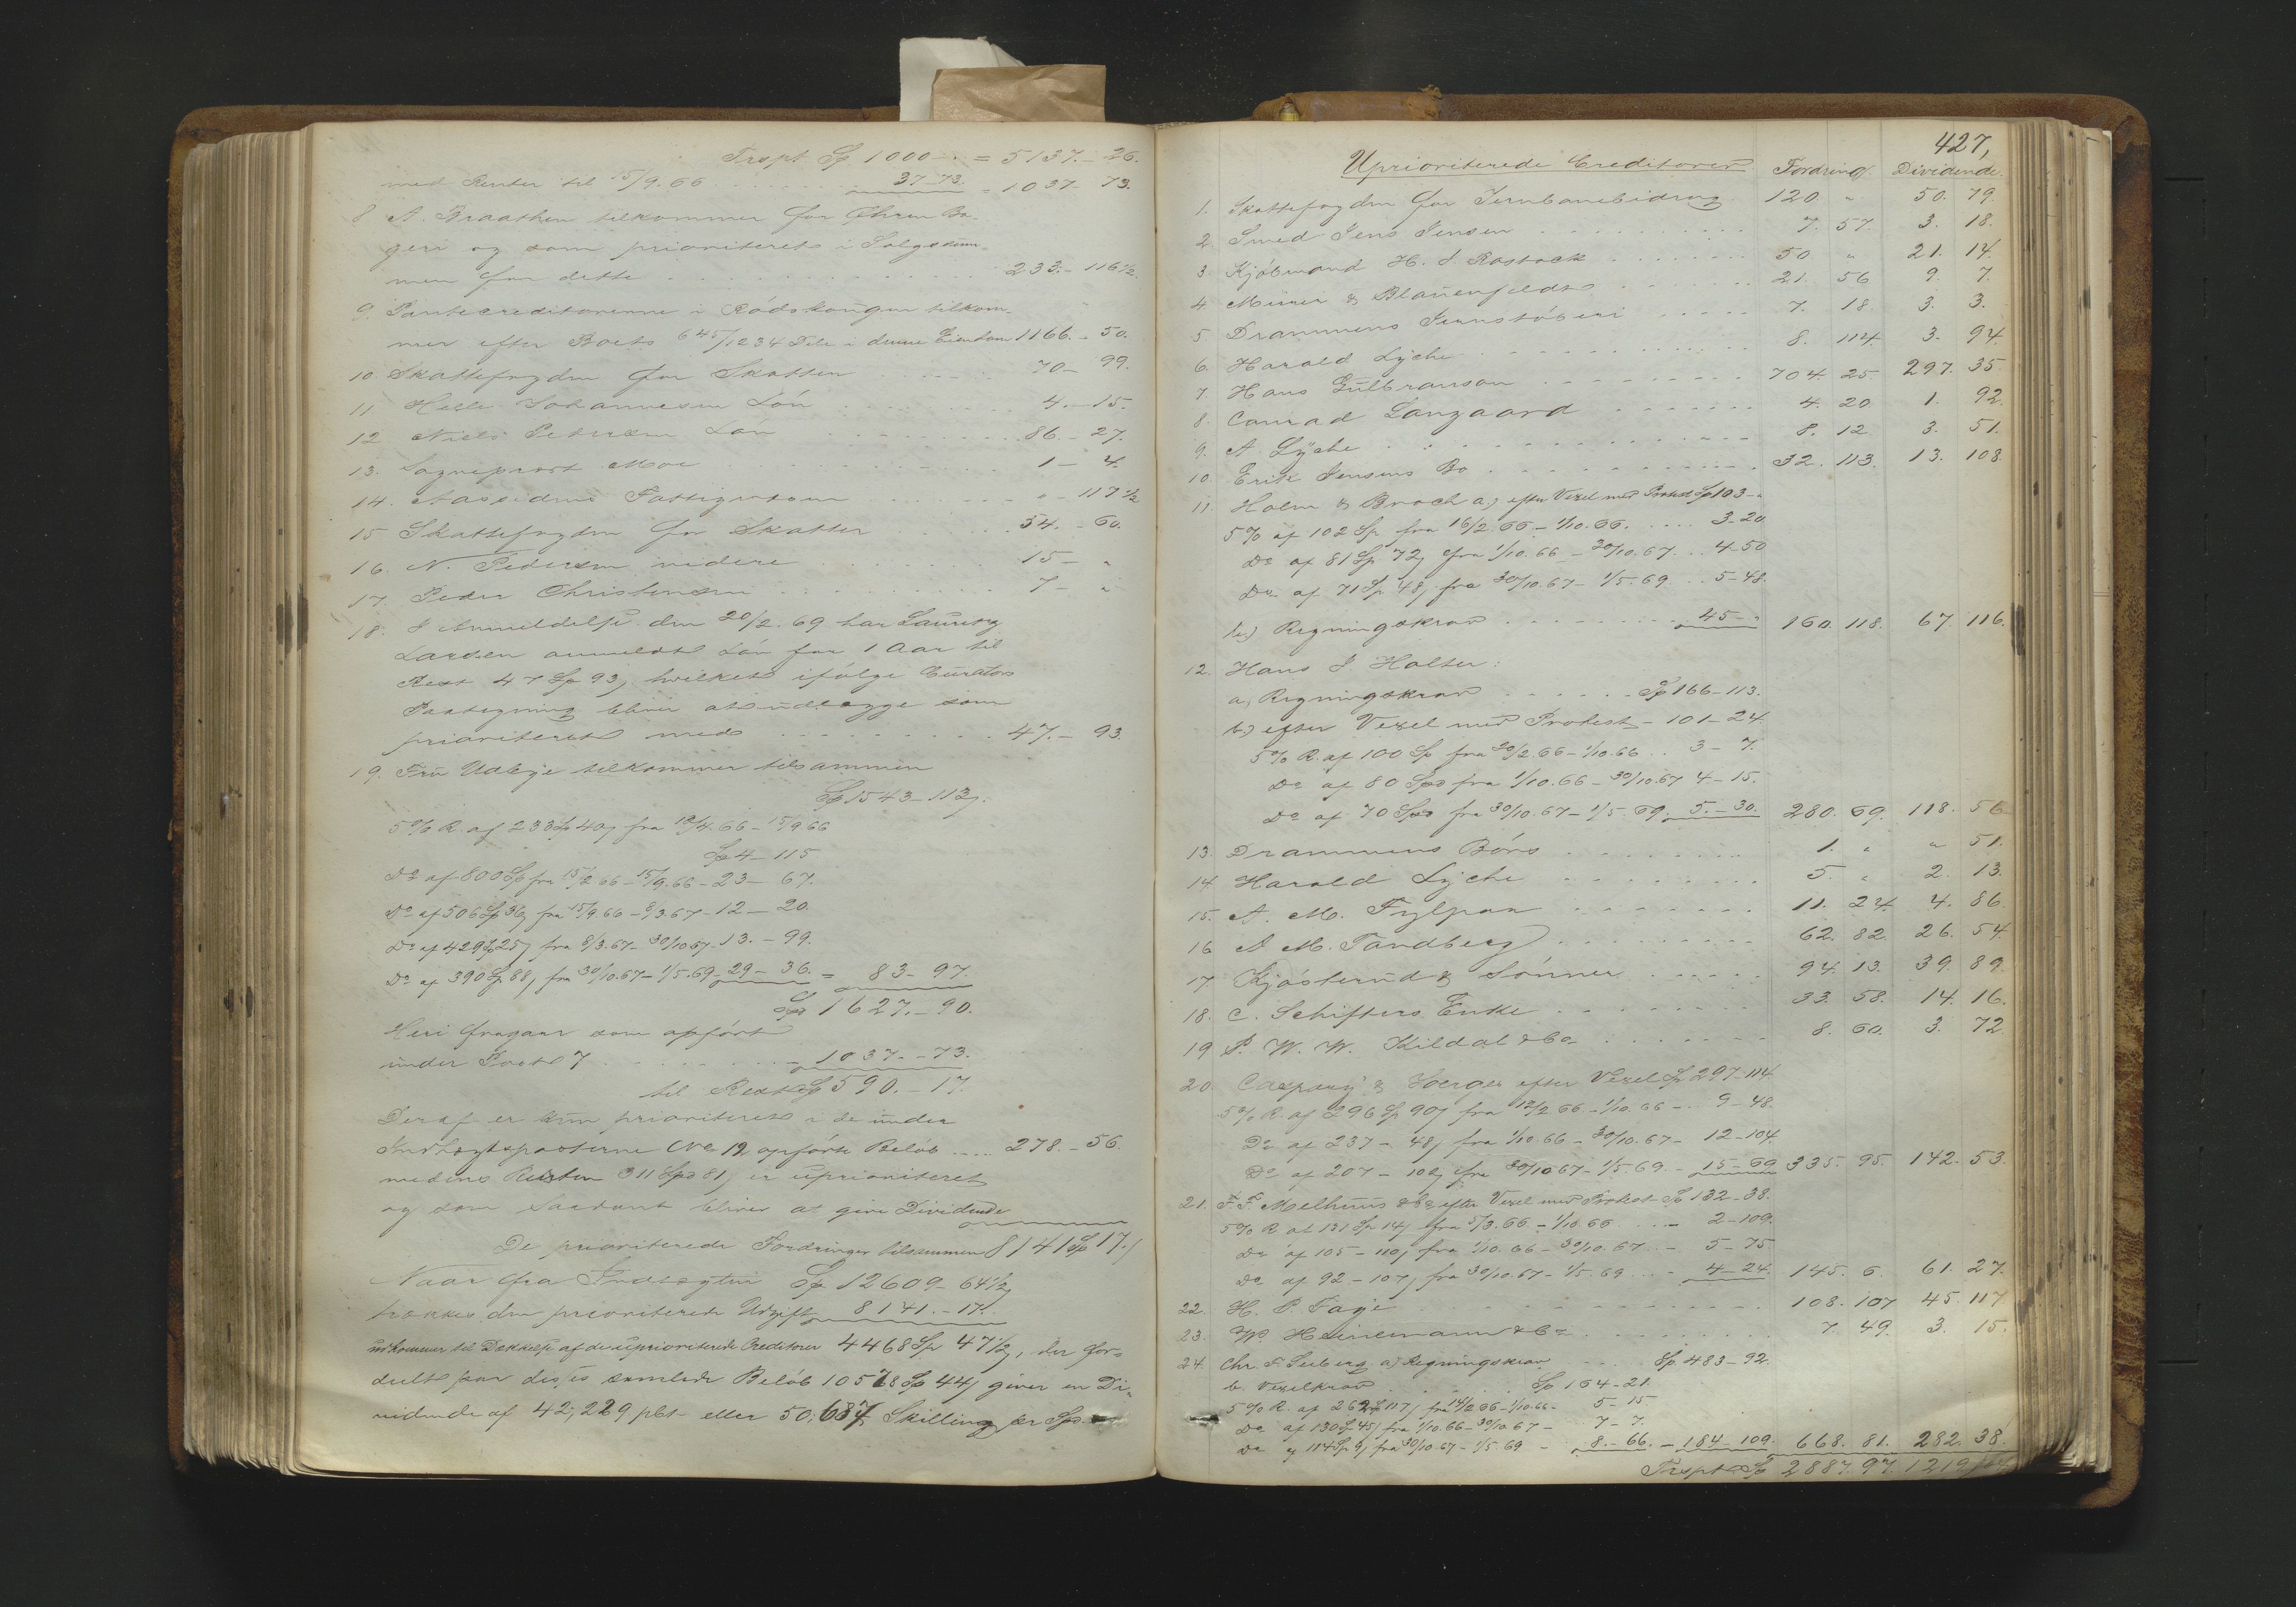 Trspt. Sp 1000 - " = 5137. - 26.
med Renter til 15/9.66 . . . . . . 37-73. = 1037. 73.
8 A. Braathen tilkommer for Chren Ba-
geri og som prioriteret i Salgssum-
men for dette . . . . . . 233. - 116 1/2.
9. Pantecreditorerne i Rødskougen tilkom-
mer efter Boets 645/1234 Dele i denne Eiendom 1166. - 50.
10. Skattefogden for Skatter . . . . . 70 - 99.
11 Helle Johannesen Løn . . . . . 4. - 15.
12 Niels Pedersen Løn . . . . . 86. - 27.
13. Sogneprest Moe . . . . . 1 - 4.
14. Aassidens Fattigvæsen . . . . . " - 117 1/2
15 Skattefogden for Skatter . . . . . 54. - 60.
16. N. Pedersen videre . . . . . 15 - "
17. Peder Christensen . . . . . 7 - "
18. I Anmeldelse den 20/2.69 har Lauritz
Larsen anmeldt Løn for 1 Aar til
Rest 47 Sp 93, hvilket ifølge Curators
Paategning bliver at udlægge som
prioriteret med . . . . . 47. - 93.
19. Fru Udbye tilkommer tilsammen
Sp 1543 - 113.
5 % R. af 233 Sp 40 fra 18/4.66 - 15/9 66
Sp 4 - 115
Do af 800 Sp fra 15/2 66 - 15/9.66 - 23 - 67.
Do af 506 Sp 36 fra 15/9.66 - 8/3.67 - 12 - 20.
Do af 429 Sp 25 fra 8/3.67 - 30/10 67. 13. - 99.
Do af 390 Sp 88, fra 30/10.67 - 1/5.69 - 29 - 36. = 83 - 97.
Sp 1627. - 90.
Heri fragaar som opført
under Post 7 . . . . . - 1037. - 73.
til Rest Sp 590. - 17.
Deraf er kun prioriteret i de under
Indtægtsposterne No 12 opførte Beløb .... 278. - 56
medens Resten 311 Spd 81 er uprioriteret
og som saadant bliver at give Dividende
De prioriterede Fordringer tilsammen 8141 Sp 17.
Naar fra Indtægten Sp 12609 - 64 1/2
trækkes den prioriterede Udgift 8141. - 17.
udkommer til Dækkelse af de uprioriterede Creditorer 4468 Sp 47 1/2, der for-
deelt paa disses samlede Beløb 10578 Sp 44 giver en Di-
vidende af 42,229 pCt eller 50,687 Skilling pr Spd.
427,
Uprioriterede Creditorer Fordring Dividende.
1. Skattefogden for Jernbanebidrag 120. " 50. 79.
2. Smed Jens Jensen . . . . . 7. 57. 3. 18.
3. Kjøbmand H. J. Rostock . . . . . 50 " 21. 14.
4. Meurer & Blauenfeldt . . . . . 21. 56 9. 7.
5. Drammens Jernstøberi . . . . . 7. 18. 3. 3.
6. Harald Lyche . . . . . 8. 114. 3. 94
7. Hans Gulbranson . . . . . 704. 25 297. 35.
8. Conrad Langaard . . . . . 4. 20. 1. 92.
9. A. Lyche . . . . . 8. 12 3. 51.
10. Erik Jensens Bo . . . . . 32. 113. 13. 108.
11. Holm & Broch a, efter Vexel med Protest Sp 103 - "
5 % af 102 Sp. fra 16/2.66 - 1/10.66. . . . . 3 - 20
Do af 81 Sp 72, fra 1/10.66 - 30/10.67 . . 4 - 50
Do af 71 Sp. 48, fra 30/10.67 - 1/5.69 . . 5 - 48.
b,) Regningskrav . . . . . 45 - " 160. 118. 67. 116.
12. Hans J. Holter:
a, Regningskrav . . . . . Sp 166 - 113.
b,) efter Vexel med Protest - 101 - 24.
5 % R. af 100 Sp fra 20/2.66 - 1/10.66 . . 3 - 7.
Do af 80 Spd fra 1/10.66 - 30/10.67 4 - 15.
Do af 70 Spd fr 30/10.67 - 1/5.69. 5. - 30. 280. 69. 118. 56
13. Drammens Børs . . . . . 1. " " 51.
14. Harald Lyche . . . . . 5. " 2. 13.
15. A. M. Fylpaa . . . . . 11. 24. 4. 86.
16 A M. Tandberg . . . . . 62. 82. 26. 54.
17. Kjøsterud & Sønner . . . . . 94. 13. 39. 89.
18. C. Schifters Enke . . . . . 33. 58. 14. 16.
19 P. W. W. Kildal & Co . . . . . 8. 60. 3. 72
20. Caspary & efter Vexel Sp 297 - 114
5 % R. af 296 Sp 90, fra 12/2 66 - 1/10.66 - . . 9 - 48.
Do af 237 - 48, fra 1/10.66 - 30/10.67 - 12 - 104.
Do af 207 - 102, fra 30/10 67 - 1/5.69. - 15 - 69 335. 95. 142. 53.
21. F. F. Melheuus & Co efter Vexel med Protest - Sp 132 - 38.
5 % R. af 131 Sp 14, fra 5/3.66 - 1/10 66 . . . - 2 - 109.
Do af 105 - 110, fra 1/10.66 - 30/10.67 . - 5 - 75
Do af 92 - 107, fra 30/10.67 - 1/5.69 . . . - 4 - 24. 145. 6. 61. 27.
22. H. P. Faye . . . . . 108. 107 45. 117.
23. W. Heinemann & Co . . . . . 7. 49. 3. 15.
24. Chr. F. Seeberg a) Regningskrav . . . . Sp 483 - 92.
b. Vexelkrav . . . . . Sp 164 - 21.
5 % R. af 162 Sp 117, fra 14/2 66 - 1/10.66 - 5 - 15
Do af 130 Sp 45, fra 1/10.66 - 30/10.67 - 7 - 7.
Do af 114 Sp 9, fra 30/10.67 - 1/5 69 - 8. - 66. - 184 - 109. 668. 81. 282. 38.
Trspt Sp 2887. 97. 1219.